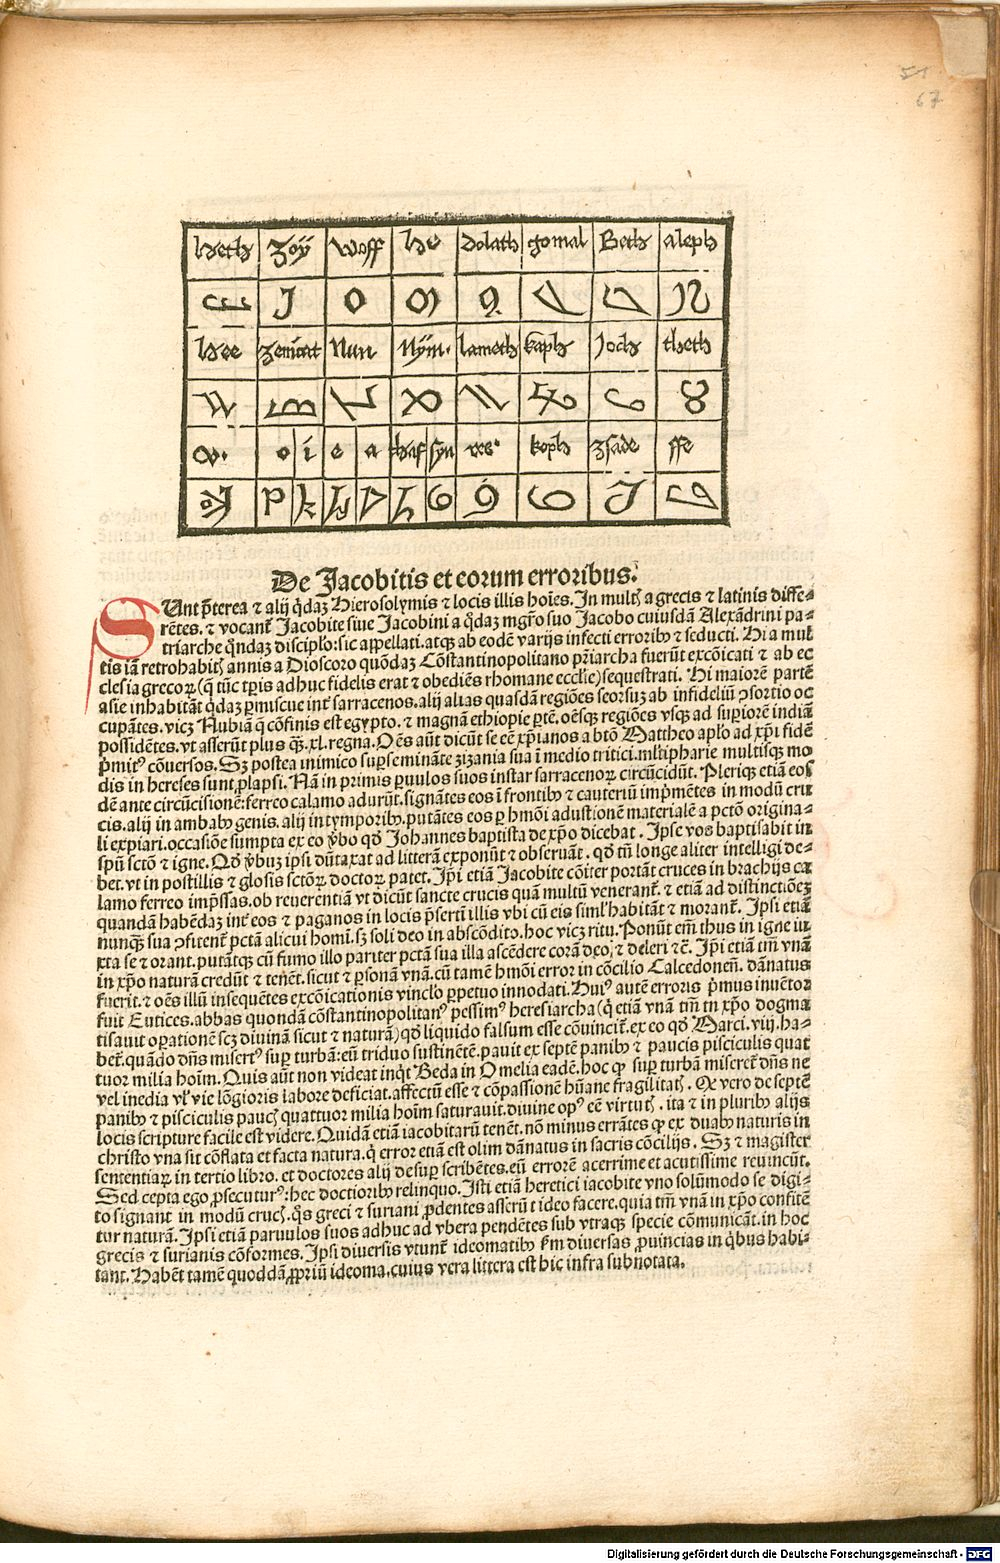 51
67
heth zoÿ woff he dolath gomal Beth aleph
hee zemcat Nun Mÿm. lameth kaph Joth theth
o i e a thaf syn res kopħ zsade ffe
De Jacobitis et eorum erroribus.
SUnt p̄terea ⁊ alij q̇daꝫ Hierosolymis ⁊ locis illis hoīes. In multꝭ a grecis ⁊ latinis diffe-
rētes. ⁊ vocant᷑ Jacobite siue Jacobini a q̇daꝫ mgr̄o suo Jacobo cuiusdā Alexādrini pa-
triarche q̄ndaꝫ discipl'o: sic appellati. atqꝫ ab eodē varijs infecti erroribꝰ ⁊ seducti. Hi a mul
tis iā retrohabitꝭ annis a Dioscoro quōdaꝫ Cōstantinopolitano pr̄iarcha fuerūt excōicati ⁊ ab ec
clesia grecoꝝ (q̄ tūc tꝑis adhuc fidelis erat ⁊ obediēs rhomane eccl'ie) sequestrati. Hi maiorē partē
asie inhabitāt q̇daꝫ ꝑmiscue int᷑ sarracenos. alij alias quasdā regiōes seorsuꝫ ab infideliū ꝯsortio oc
cupātes. vicꝫ Nubiā q̄ cōfinis est egypto. ⁊ magnā ethiopie ꝑtē. oēsqꝫ regiōes vsqꝫ ad suꝑiorē indiā
possidētes. vt asserūt plus qꝫ .xl. regna. Oēs aūt dicūt se eē xp̄ianos a btō Mattheo apl'o ad xp̄i fidē
p̄mitꝰ cōuersos. Sꝫ postea inimico suꝑsemināte zizania sua ī medio tritici. ml'tipharie multisqꝫ mo
dis in hereses sunt ꝓlapsi. Nā in primis ꝑuulos suos instar sarracenoꝝ circūcidūt. Pleriqꝫ etiā eos
dē ante circūcisionē: ferreo calamo adurūt. signātes eos ī frontibꝰ ⁊ cauteriū imp̄mētes in modū cru
cis. alij in ambabꝰ genis. alij in tymporibꝰ. putātes eos ꝑ hmōi adustionē materialē a pctō origina-
li expiari. occasiōe sumpta ex eo v̄bo qđ Johannes baptista de xp̄o dicebat. Ipse vos baptisabit in
spū sctō ⁊ igne. Qđ v̄buꝫ ipsi dūtaxat ad litterā exponūt ⁊ obseruāt. qđ tn̄ longe aliter intelligi de-
bet. vt in postillis ⁊ glosis sctōꝝ doctoꝝ patet. Ip̄i etiā Jacobite cōiter portāt cruces in brachijs ca
lamo ferreo imp̄ssas. ob reuerentiā vt dicūt sancte crucis quā multū venerant᷑. ⁊ etiā ad distinctiōeꝫ
quandā habēdaꝫ int᷑ eos ⁊ paganos in locis p̄sertī illis vbi cū eis siml' habitāt ⁊ morant᷑. Ipsi etiā
nunqꝫ sua ꝯfitent᷑ pctā alicui homī. sꝫ soli deo in abscōdito. hoc vicꝫ ritu. Ponūt em̄ thus in igne iu
xta se ⁊ orant. putātqꝫ cū fumo illo pariter pctā sua illa ascēdere corā deo, ⁊ deleri ⁊c̄. Ip̄i etiā tm̄ vnā
in xp̄o naturā credūt ⁊ tenēt. sicut ⁊ ꝑsonā vnā. cū tamē hmōi error in cōcilio Calcedonen̄. dānatus
fuerit. ⁊ oēs illū insequētes excōicationis vincl'o ꝑpetuo innodati. Huiꝰ autē erroris p̄mus inuētor
fuit Eutices. abbas quondā cōstantinopolitanꝰ pessimꝰ heresiarcha (q̇ etiā vnā tm̄ in xp̄o dogma
tisauit oꝑationē scꝫ diuinā sicut ⁊ naturā) qđ liquido falsum esse cōuincit᷑. ex eo qđ Marci. viij. ha-
bet᷑. quādo dn̄s misertꝰ suꝑ turbā: eū triduo sustinētē. pauit ex septē panibꝰ ⁊ paucis pisciculis quat
tuor milia hoīm. Quis aūt non videat inq̇t Beda in Omelia eadē. hoc ꝙ suꝑ turbā miseret᷑ dn̄s ne
vel inedia vl' vie lōgioris labore deficiat. affectū esse ⁊ cōpassionē hūane fragilitatꝭ. Ex vero de septē
panibꝰ ⁊ pisciculis paucꝭ quattuor milia hoīm saturauit. diuine opꝰ eē virtutꝭ. ita ⁊ in pluribꝰ alijs
locis scripture facile est videre. Quidā etiā iacobitarū tenēt. nō minus errātes ꝙ ex duabꝰ naturis in
christo vna sit cōflata et facta natura. q̇ error etiā est olim dānatus in sacris cōcilijs. Sꝫ ⁊ magister
sententiaꝝ in tertio libro. et doctores alij desuꝑ scribētes. eū errorē acerrime et acutissime reuincūt.
Sed cepta ego ꝓsecuturꝰ: hec doctioribꝰ relinquo. Isti etiā heretici iacobite vno solūmodo se digi-
to signant in modū crucꝭ. q̇s greci ⁊ suriani ꝓdentes asserūt ideo facere. quia tm̄ vnā in xp̄o confitē
tur naturā. Ipsi etiā paruulos suos adhuc ad vbera pendētes sub vtraqꝫ specie cōmunicāt. in hoc
grecis ⁊ surianis cōformes. Ipsi diuersis vtunt᷑ ideomatibꝰ km̄ diuersas ꝓuincias in q̇bus habi-
tant. Habēt tamē quoddā ꝓpriū ideoma. cuius vera littera est hic infra subnotata.
Digitalisierung gefördert durch die Deutsche Forschungsgemeinschaft - DFG